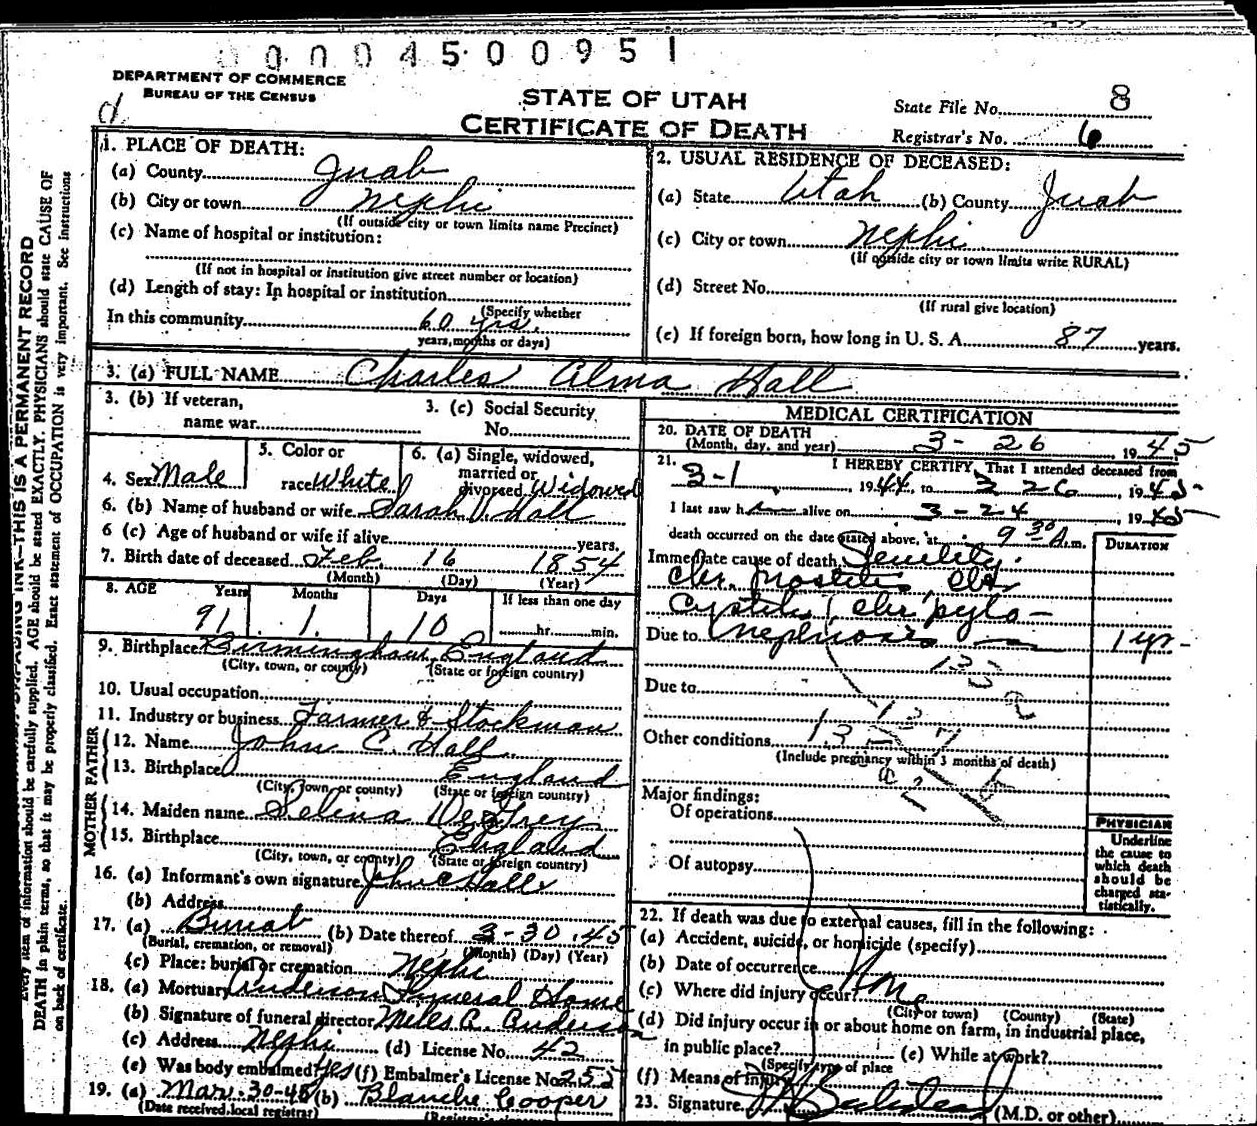 0000 4500951
DEPARTMENT OF COMMERCE
BUREAU OF THE CENSUS
STATE OF UTAH
CERTIFICATE OF DEATH
State File No. 8
Registrar's No. 6
1. PLACE OF DEATH:
(a) County Juab
(b) City or town Nephi
(If outside city or town limits name Precinct)
(c) Name of hospital or institution:
(If not in hospital or institution give street number or location)
(d) Length of stay: In hospital or institution
(Specify whether
In this community 60 yrs.
years, months or days)
2. USUAL RESIDENCE OF DECEASED:
(a) State Utah (b) County Juab
(c) City or town Nephi
(If outside city or town limits write RURAL)
(d) Street No.
(If rural give location)
(e) If foreign born, how long in U. S. A. 87 years.
3. (a) FULL NAME Charles Alma Hall
3. (b) If veteran,
name war
3. (c) Social Security
No.
4. Sex Male
5. Color or
race White
6. (a) Single, widowed,
married or
divorced Widowed
6. (b) Name of husband or wife Sarah V. Hall
6 (c) Age of husband or wife if alive years.
7. Birth date of deceased Feb. 16 1854
(Month) (Day) (Year)
8. AGE Years Months Days If less than one day
91 1 10 hr. min.
9. Birthplace Birmingham, England
(City, town, or county) (State or foreign country)
10. Usual occupation
11. Industry or business Farmer & Stockman
FATHER
12. Name John C. Hall
13. Birthplace England
(City, town, or county) (State or foreign country)
MOTHER
14. Maiden name Selina DeGrey
15. Birthplace England
(City, town, or county) (State or foreign country)
16. (a) Informant's own signature John C Hall
(b) Address
17. (a) Burial (b) Date thereof 3-30-45
(Burial, cremation, or removal) (Month) (Day) (Year)
(c) Place: burial or cremation Nephi
18. (a) Mortuary Anderson Funeral Home
(b) Signature of funeral director Miles A. Anderson
(c) Address Nephi (d) License No. 42
(e) Was body embalmed Yes (f) Embalmer's License No. 255
19. (a) Mar. 30-45 (b) Blanche Cooper
(Date received local registrar)
MEDICAL CERTIFICATION
20. DATE OF DEATH
(Month, day, and year) 3-26 1945
21. I HEREBY CERTIFY, That I attended deceased from
3-1, 1944, to 3 26, 1945
I last saw h alive on 3-24 1945
death occurred on the date stated above, at 9 30 A.m.
DURATION
Immediate cause of death Senility.
Chr.
Cystitis, chr pylo-
Due to nephrosis 1 yr-
133 a
Due to
Other conditions
(Include pregnancy within 3 months of death)
Major findings:
Of operations
Of autopsy
PHYSICIAN
Underline
the cause to
which death
should be
charged sta-
tistically.
22. If death was due to external causes, fill in the following:
(a) Accident, suicide, or homicide (specify)
(b) Date of occurrence
(c) Where did injury occur?
(City or town) (County) (State)
(d) Did injury occur in or about home on farm, in industrial place,
in public place? (e) While at work?
(Specify type of place
(f) Means of injury
23. Signature (M.D. or other)
THIS IS A PERMANENT RECORD
Every item of information should be carefully supplied. AGE should be stated EXACTLY. PHYSICIANS should state CAUSE OF
DEATH in plain terms, so that it may be properly classified. Exact statement of OCCUPATION is very important. See instructions
on back of certificate.